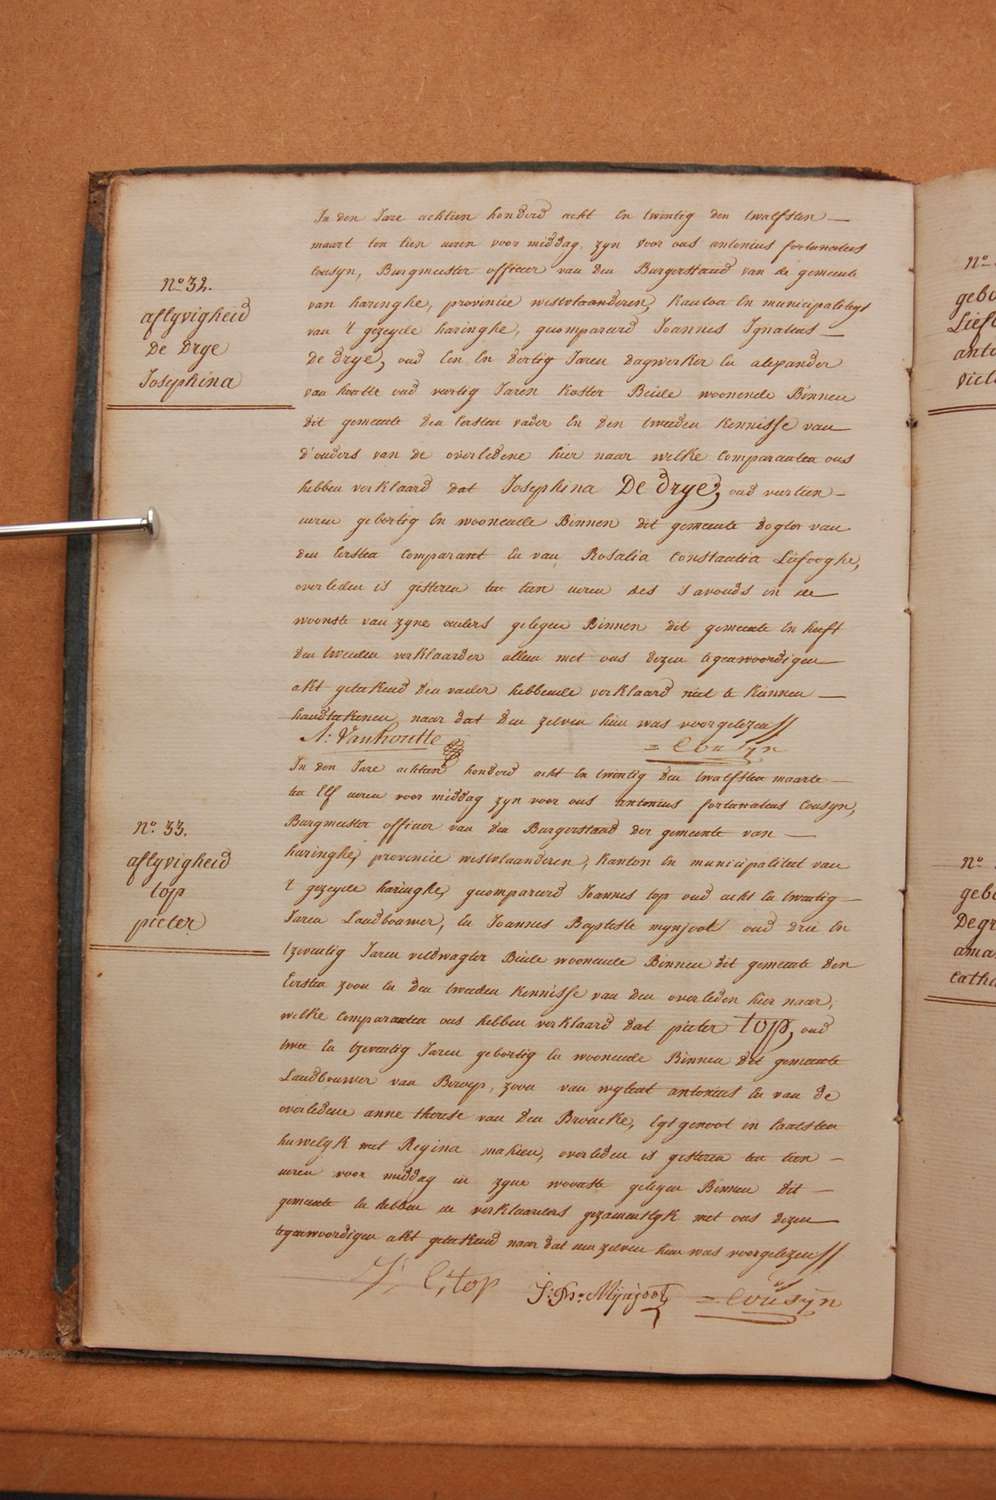 No 32.
aflyvigheid
De Drye
Josephina
In den Jare achtien honderd acht En twintig den twalfsten
maart ten tien uren voor middag, zyn voor ons antonius fortunatus
Cousyn, Burgmeester officier van den Burgerstand van de gemeente
van haringhe, provincie westvlaanderen, Kanton En municipaliteyt
van 't gezeyde haringhe, gecompareerd Joannes Ignatius
De Drye, oud Een En dertig Jaren dagwerker En alexander
van houtte oud veertig Jaren Koster Beide woonende Binnen
dit gemeente den Eersten vader En den tweeden Kennisse van
d'ouders van de overledene hier naar welke Comparanten ons
hebben verklaard dat Josephina De Drye, oud veertien
uren gebortig En woonende Binnen dit gemeente dogter van
den Eersten Comparant En van Rosalia Constantia Liefooghe,
overleden is gisteren ten tien uren des s'avonds in de
woonste van zyne ouders gelegen Binnen dit gemeente En heeft
den tweeden verklaarder alleen met ons dezen tegenwoordigen
akt geteekend den vader hebbende verklaard niet te Kunnen
handteekenen naar dat den zelven hun was voorgelezen//
A: Vanhoutte
= Cousyn
No. 33.
aflyvigheid
top
pieter
In den Jare achtien honderd acht En twintig den twalfsten maarte
ten Elf uren voor middag zyn voor ons antonius fortunatus Cousyn,
Burgmeester officier van den Burgerstand der gemeente van
haringhe, provincie westvlaanderen, Kanton En municipaliteit van
't gezeyde haringhe, gecompareerd Joannes top oud acht En twintig
Jaren Landbouwer, En Joannes Baptiste mynjoot oud drie En
tzeventig Jaren veldwagter Beide woonende Binnen dit gemeente den
Eersten zoon En den tweeden Kennisse van den overleden hier naar,
welke Comparanten ons hebben verklaard dat pieter top, oud
twee En tzeventig Jaren gebortig En woonende Binnen dit gemeente
Landbouwer van Beroep, zoon van wylent antonius En van de
overledene anne therese van den Broucke, Egtgenoot in laatsten
huwelyk met Regina mahieu, overleden is gisteren ten tien
uren voor middag in zyne woonste gelegen Binnen dit
gemeente En hebben de verklaarders gezamentlyk met ons dezen
tegenwoordigen akt geteekend naar dat den zelven hun was voorgelezen//
J: C: top
J: Bte Mijnjoot
= Cousyn
No
gebo
Lief
anto
vict
No
gebo
Degr
ama
Catha